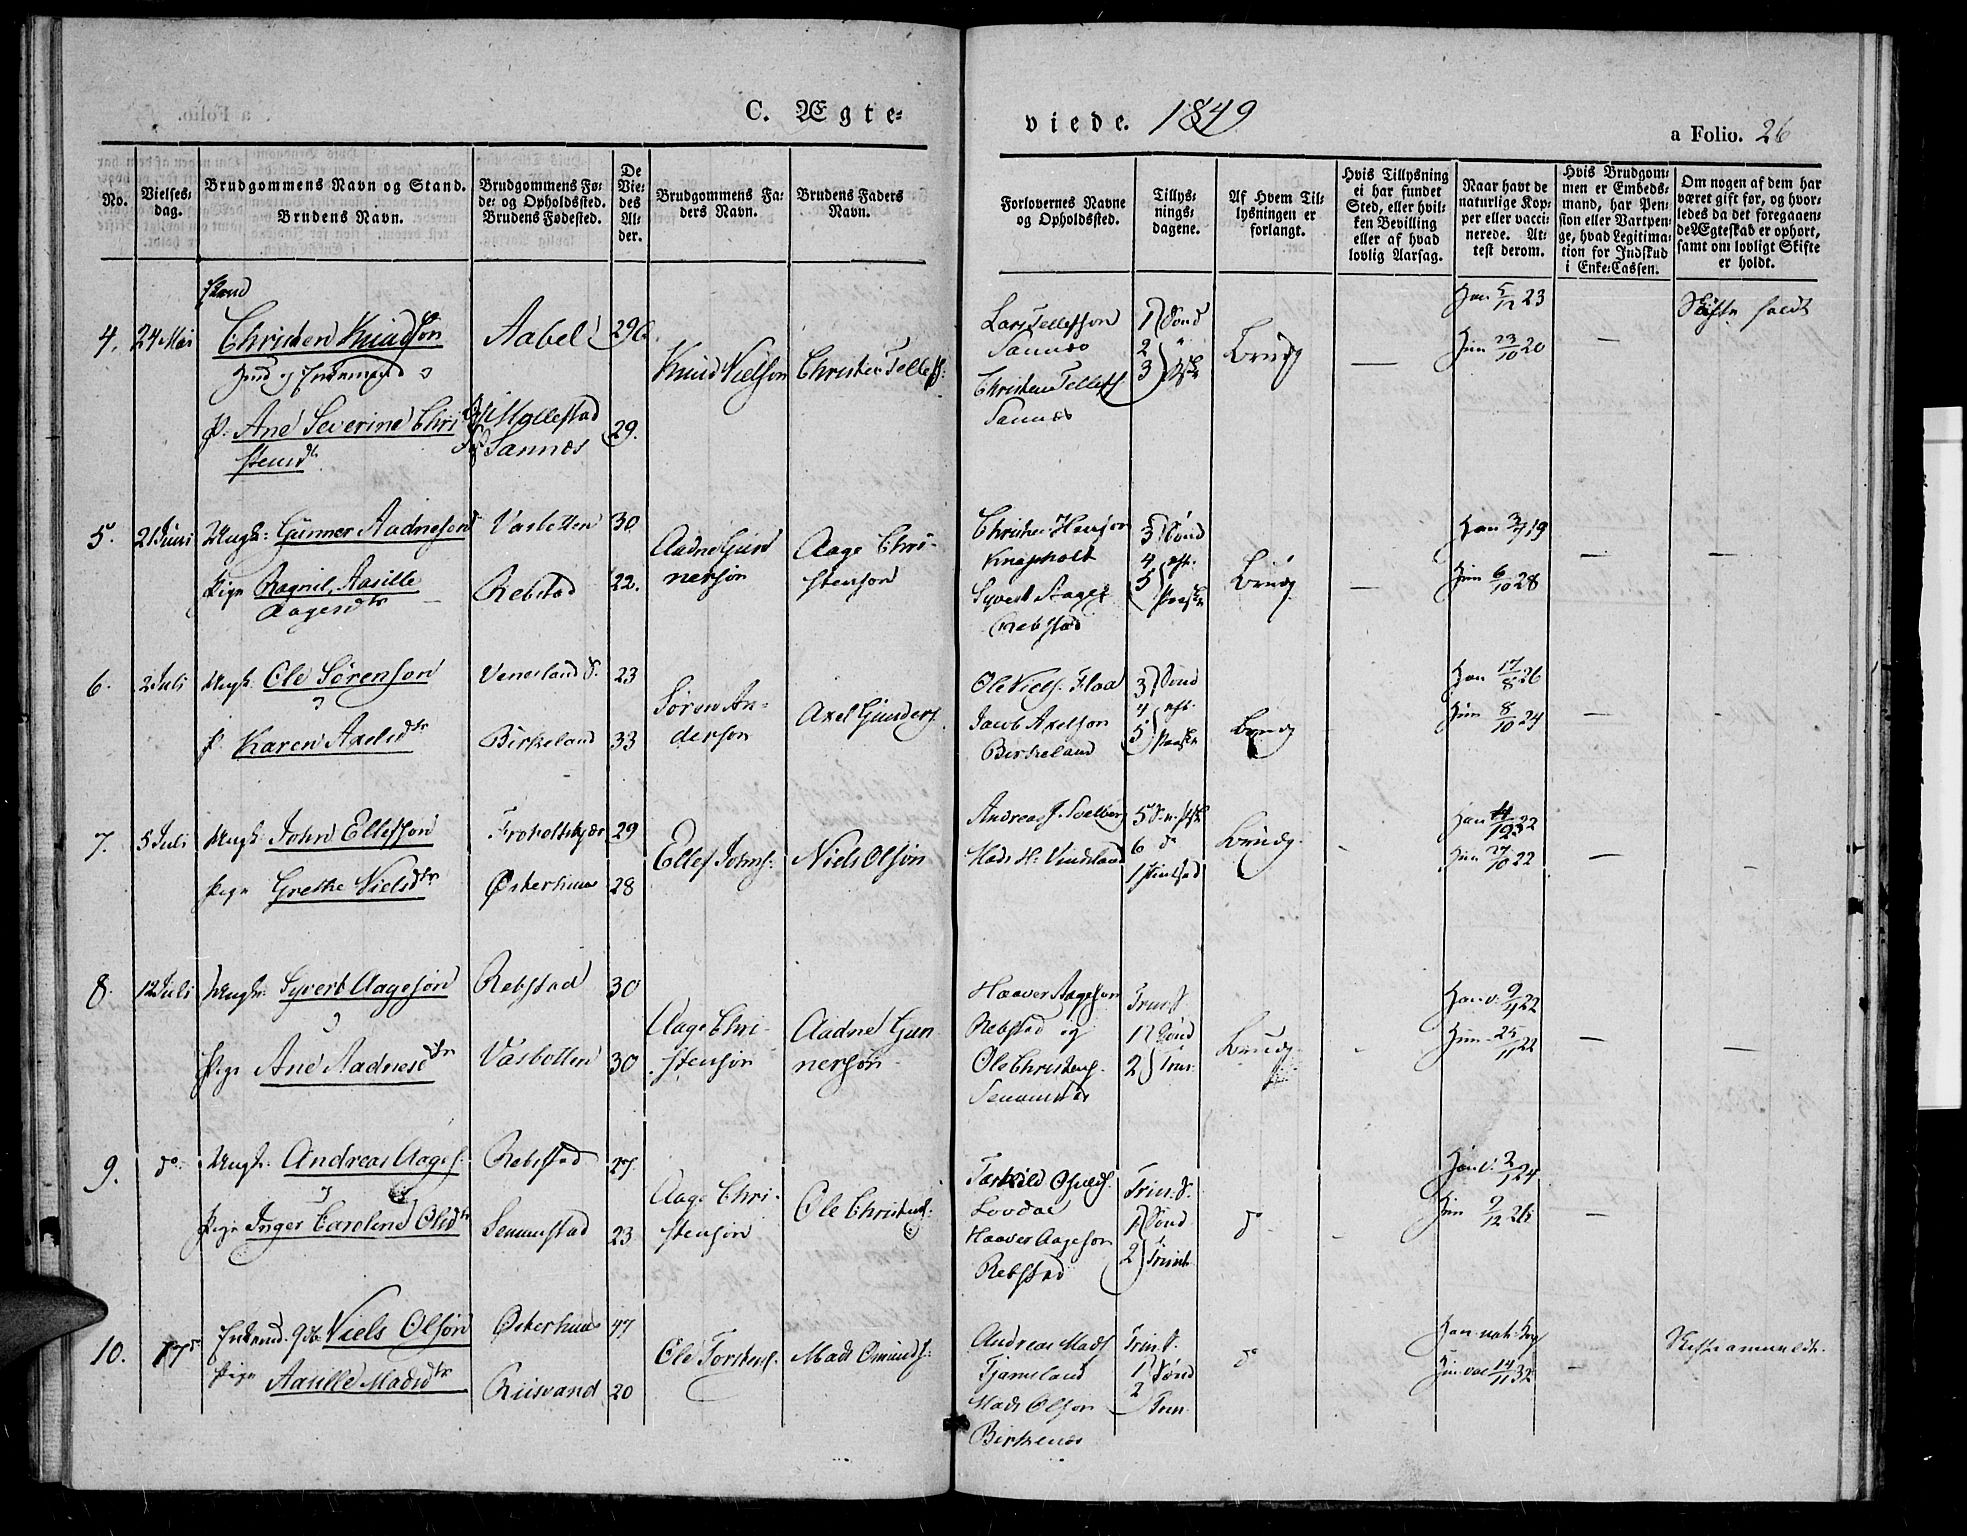 C. Ægte-
viede. 1849
a Folio. 26
No.
Vielses-
dag.
Brudgommens Navn og Stand.
Brudens Navn.
Brudgommens Fø-
de- og Opholdsted.
Brudens Fødested.
De
Vie-
des
Al-
der.
Brudgommens Fa-
ders Navn.
Brudens Faders
Navn.
Forlovernes Navne
og Opholdsted.
Tillys-
nings-
dagene.
Af Hvem Til-
lysningen er
forlangt.
Hvis Tillysning
ei har fundet
Sted, eller hvil-
ken Bevilling
eller af hvad
lovlig Aarsag.
Naar havt de
naturlige Kop-
per eller vacci-
nerede. At-
test derom.
Hvis Brudgom-
men er Embeds-
mand, har Pen-
sion eller Vartpen-
ge, hvad Legitima-
tion for Indskud
i Enke-Cassen.
Om nogen af dem har
været gift før, og hvor-
ledes da det foregaaen-
de Ægteskab er ophørt,
samt om lovligt Skifte
er holdt.
4. 24 Mai
Christen Knudson
P. Ane Severine Chri
stensdr.
Aabel
Mollestad
Sannæs
29
29.
Knud Nielson
Christen Tellefs.
Lars Tellefson
Sannæs
Christen Tellefs
Sannæs
1) Sond
2
3
Brudg
Han 5/12 23
Hun 23/10 20
—
—
Skifte holdt
5. 21 Juni
Ungk: Gunner Aadneson
Pige Ragnil Aasille
Aagesdtr
Vasbotten
Rebstad
30
22.
Aadne Gun
nerson
Aage Chri-
stenson
Christen Hanson
Knapholt
Syvert Aages
Rebstad
3) Sond
4 eft.
5) Paaske
Brudg
—
Han 3/7 19
Hun 6/10 28
—
—
6. 2 Juli
Ungk. Ole Sörenson
P. Karen Axelsdtr
Veneland
Birkeland
23
33
Sören An-
derson
Axel Gunders.
Ole Niels. Flaa
Jacob Axelson
Birkeland
3) Sond
4 eft.
5) Paaske
Brudg
Han 17/8 26
Hun 8/10 24
—
-
7. 5 Juli
Ungk: John Ellefson
Pige Grethe Nielsdtr
Froholtskjær
Østerhuus
29
28
Ellef Johns.
Niels Olson
Andreas J. Svelberg
Mads H. Vindsland
5
6 do
1
Brudg.
Hun 27/10 22
—
8. 12 Juli
Ungk. Syvert Aageson
Pige Ane Aadnesdtr
Rebstad
Vasbotten
30
30
Aage Chri-
stenson
Aadne Gun
nerson
Haaver Aageson
Rebstad og
Ole Christens.
Trin. S.
1) Sond
2) Trin.
Brudg.
Han v. 9/1 22
Hun 25/11 22
—
—
9. do
Ungk. Andreas Aages.
Pige Inger Caroline Olsdtr
Rebstad
Semmestad
27.
23
Aage Chri-
stenson
Ole Christens.
Tarkild Osulds.
Lovdal
Haaver Aageson
Rebstad
Trin. S.
1) Sond
2) Trinit.
do
Han v. 2/1 24
Hun 9/12 26
—
10. 17 do
Niels Olson
Pige
Aasille Madsdtr
Østerhuus
Riisvand
47
20
Ole Torstens.
Mads Omunds.
Andreas Mads
Tjameland
Mads Olson
Birkenæs
Trin. S.
1) Sond
2) Trin.
do
Han nat. Kop
Hun vac 14/11 32
—